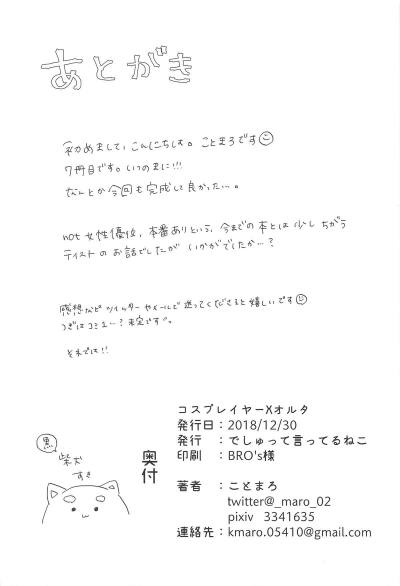 あとがき
初めまして、こんにちは。ことまろです
7冊目です。いつのまに!!!
なんとか今回も完成して良かった…。
not女性優位、本番ありという、今までの本とは少しちがう
テイストのお話でしたがいかがでしたか…?
感想などツイッターやメールで送ってくださると嬉しいです
つぎはコミ1…?未定です。
それでは!!
コスプレイヤーXオルタ
発行日:2018/12/30
発行 :でしゅって言ってるねこ
印刷 :BRO's様
奥付
著者 :ことまろ
twitter@_maro_02
pixiv 3341635
連絡先:kmaro.05410@gmail.com
黒
柴犬
すき